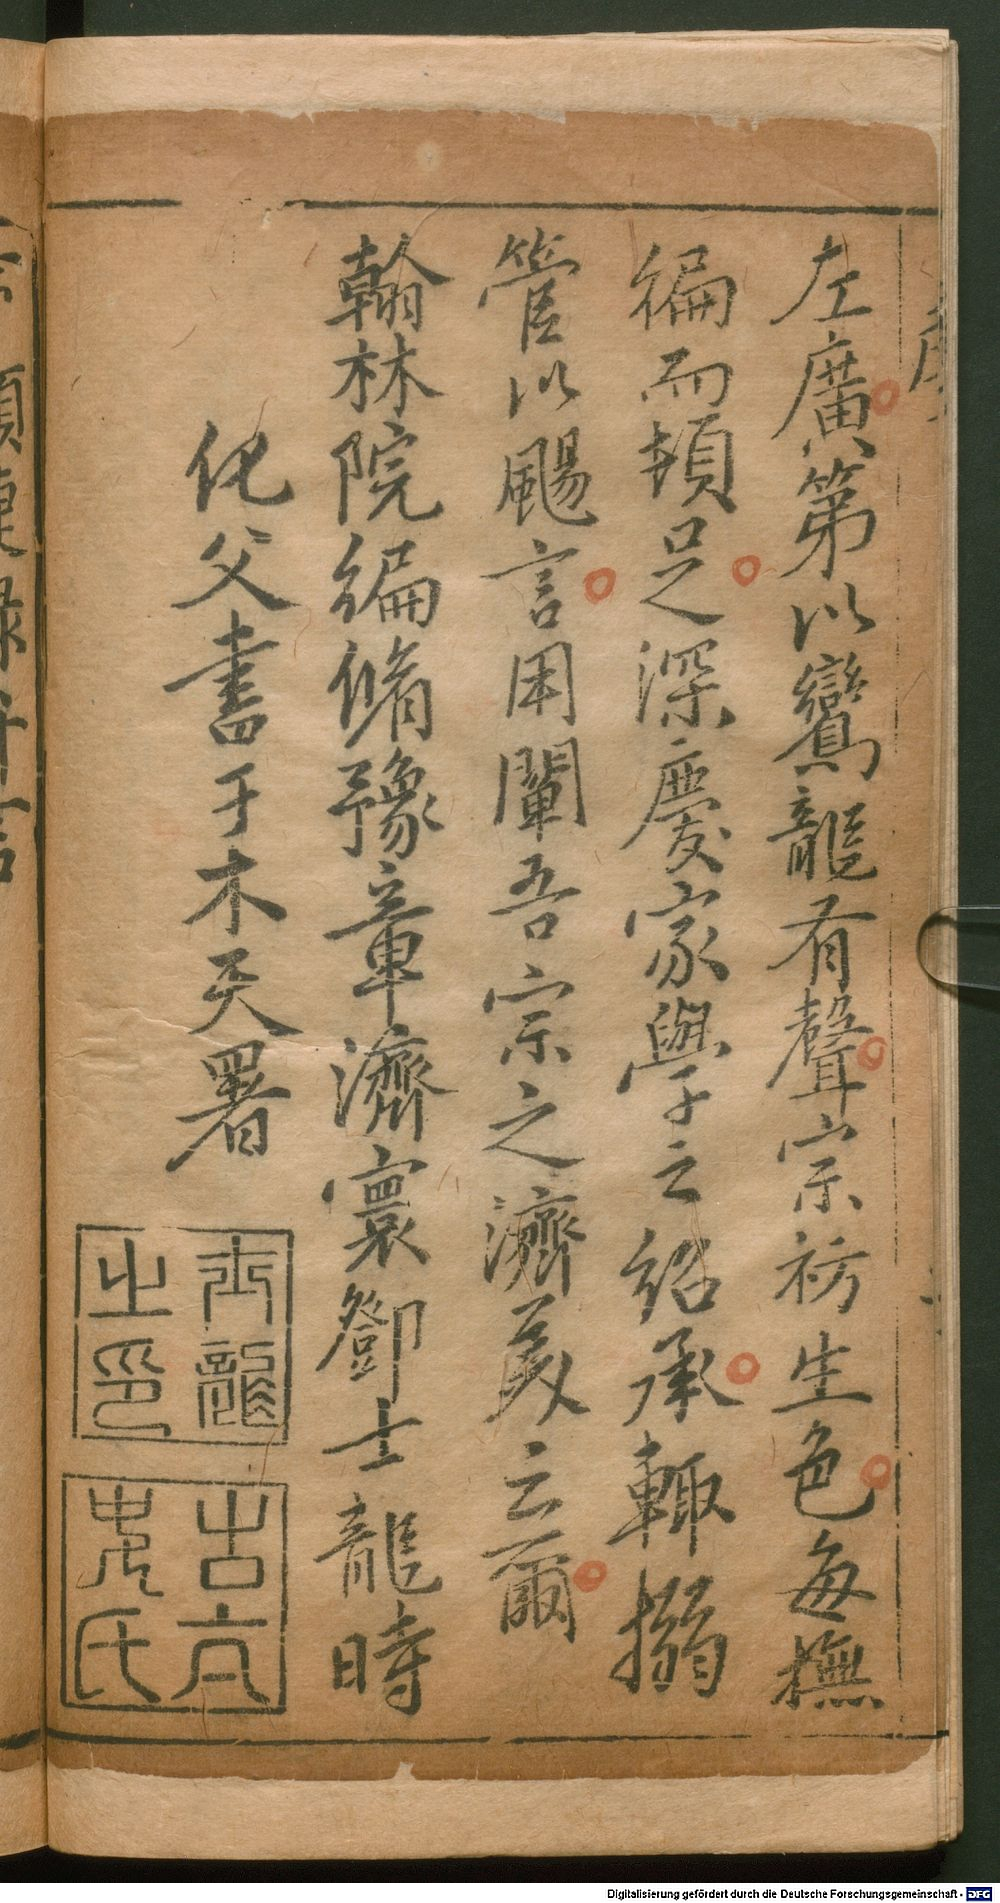 左廣第以鸞龍有聲宗祊生色每撫
徧而頓足深慶家學之紹承輒搦
管以颺言用闡吾宗之濟美云爾
翰林院編脩豫章濟寰鄧士龍時
化父書于木天署
士龍
之印
太史
氏
Digitalisierung gefördert durch die Deutsche Forschungsgemeinschaft - DFG